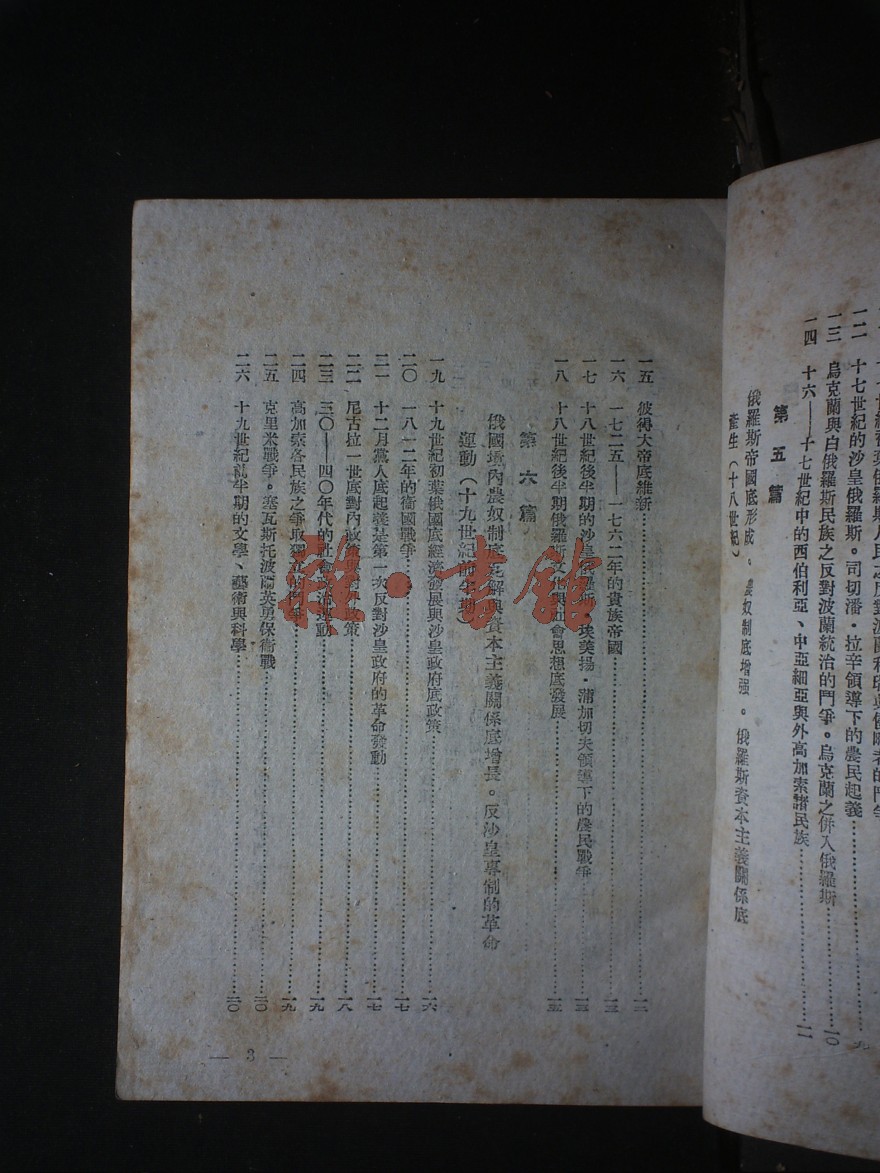 一二 十七世紀的沙皇俄羅斯。司切潘·拉辛領導下的農民起義
一三 烏克蘭與白俄羅斯民族之反對波蘭統治的鬥爭。烏克蘭之併入俄羅斯 一〇
一四 十六——十七世紀中的西伯利亞、中亞細亞與外高加索諸民族 一一
第五篇
俄羅斯帝國底形成。農奴制底增强。俄羅斯資本主義關係底
產生(十八世紀)
一五 彼得大帝底維新 一二
一六 一七二五——一七六二年的貴族帝國 一三
一七 十八世紀後半期的沙皇俄羅斯。埃美揚·蒲加切夫領導下的農民戰爭 一三
一八 十八世紀後半期俄羅斯文化與社會思想底發展 一五
第六篇
俄國境內農奴制底瓦解與資本主義關係底增長。反沙皇專制的革命
運動(十九世紀前半期)
一九 十九世紀初葉俄國底經濟發展與沙皇政府底政策 一六
二〇 一八一二年的衞國戰爭 一七
二一 十二月黨人底起義是第一次反對沙皇政府的革命發動 一七
二二 尼古拉一世底對內政策對外政策 一八
二三 三〇——四〇年代的社會政治運動 一九
二四 高加索各民族之爭取獨立的鬥爭 一九
二五 克里米戰爭。塞瓦斯托波爾英勇保衞戰 二〇
二六 十九世紀前半期的文學、藝術與科學 二〇
— 3 —
雜·書館